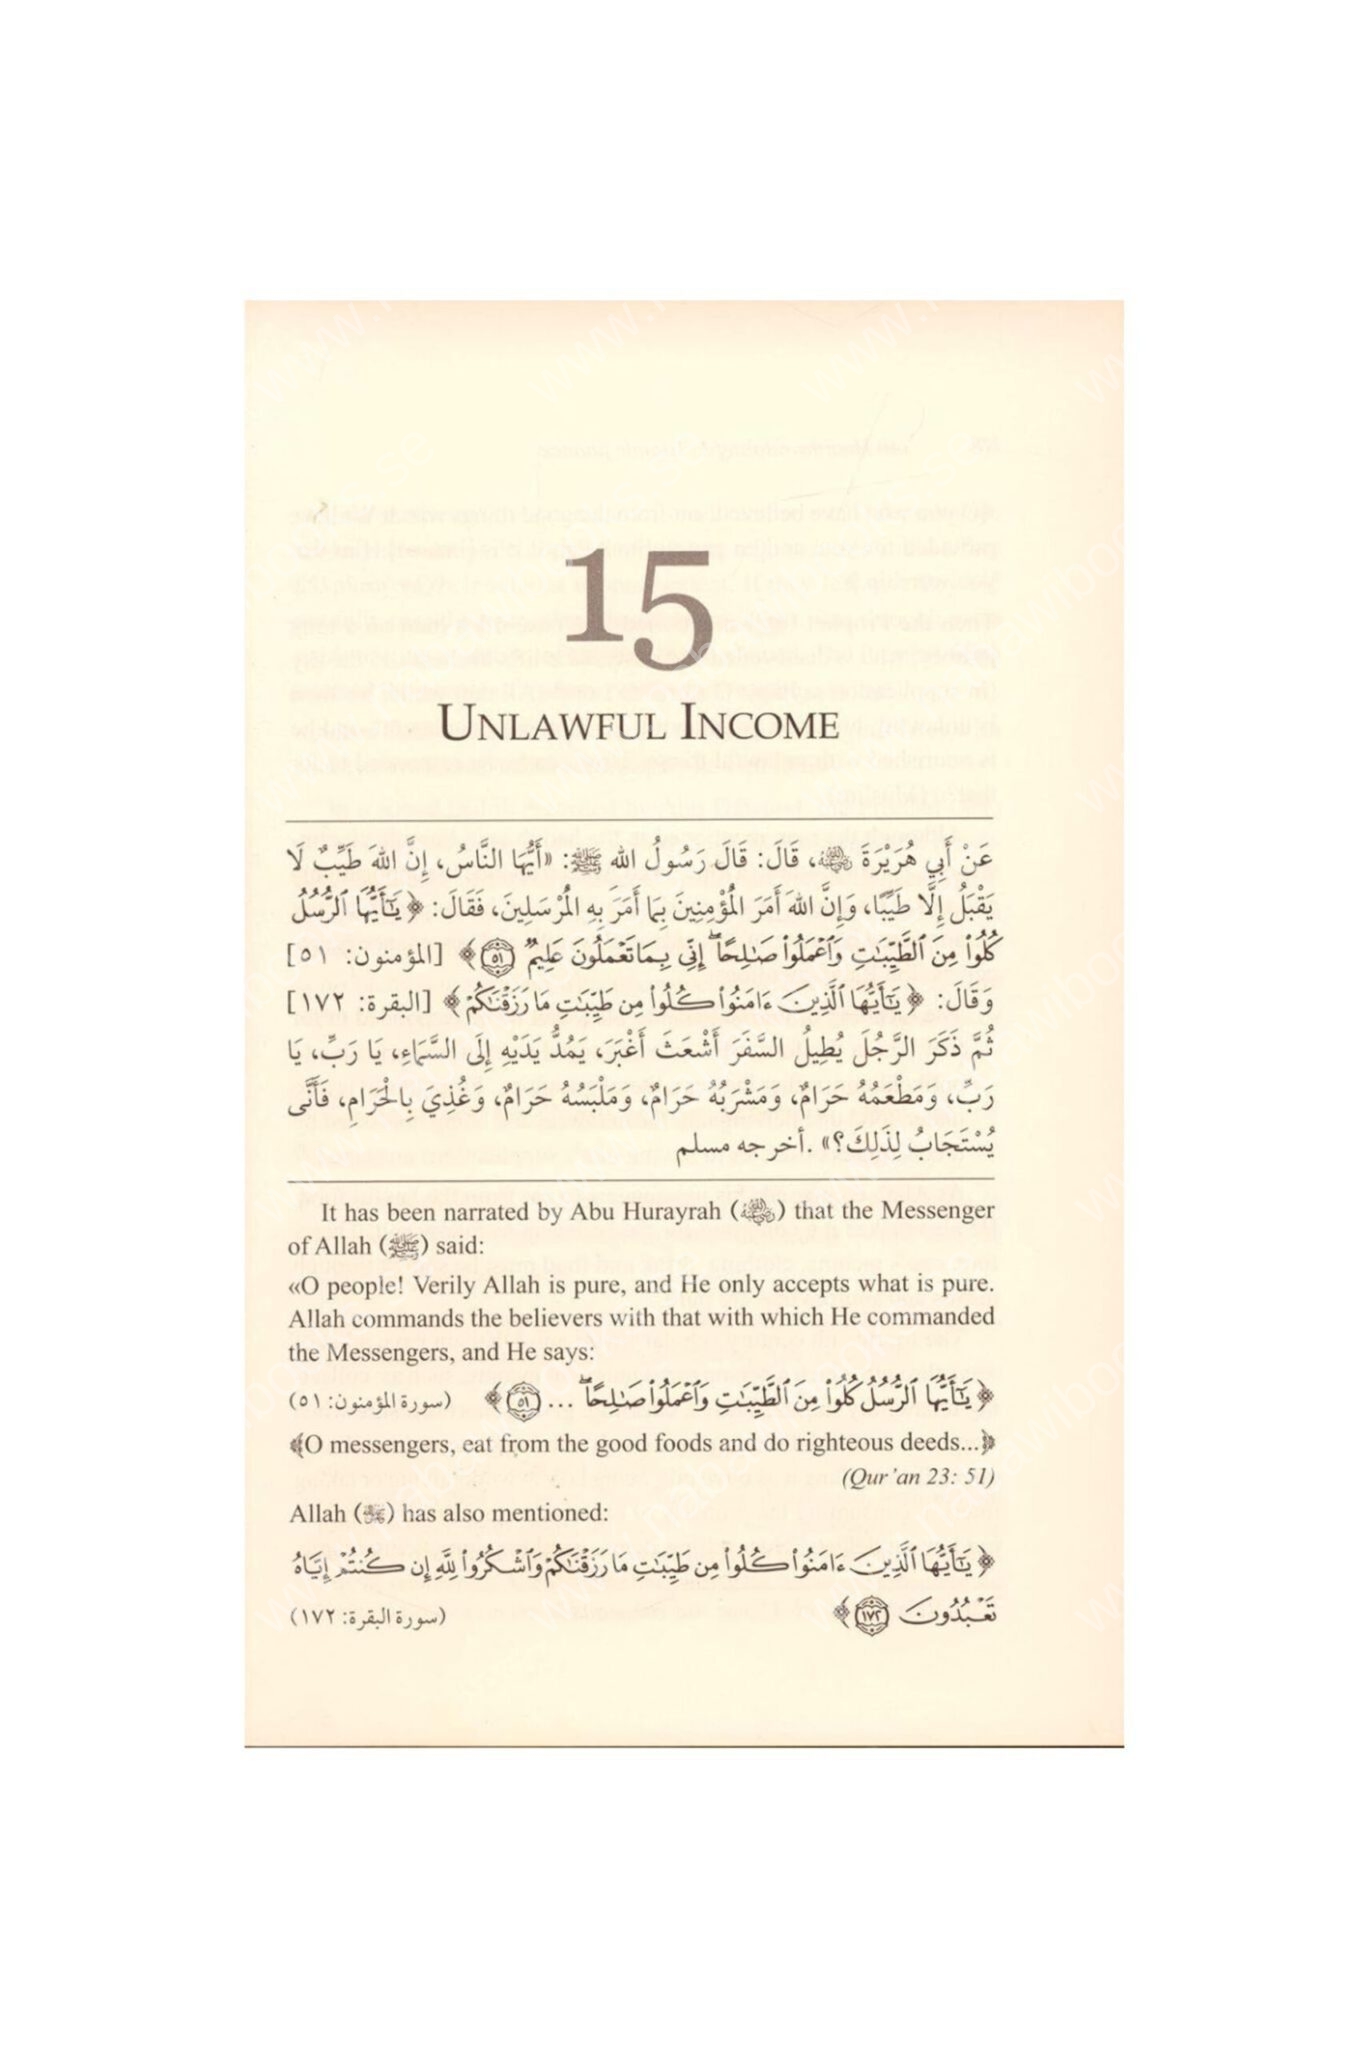 15
UNLAWFUL INCOME
عَنْ أَبِي هُرَيْرَةَ رضي الله عنه، قَالَ: قَالَ رَسُولُ الله ﷺ: «أَيُّهَا النَّاسُ، إِنَّ اللهَ طَيِّبٌ لَا
يَقْبَلُ إِلَّا طَيِّبًا، وَإِنَّ اللهَ أَمَرَ الْمُؤْمِنِينَ بِمَا أَمَرَ بِهِ الْمُرْسَلِينَ، فَقَالَ: ﴿يَٰٓأَيُّهَا ٱلرُّسُلُ
كُلُوا۟ مِنَ ٱلطَّيِّبَٰتِ وَٱعْمَلُوا۟ صَٰلِحًا ۖ إِنِّى بِمَا تَعْمَلُونَ عَلِيمٌ ٥١﴾ [المؤمنون: ٥١]
وَقَالَ: ﴿يَٰٓأَيُّهَا ٱلَّذِينَ ءَامَنُوا۟ كُلُوا۟ مِن طَيِّبَٰتِ مَا رَزَقْنَٰكُمْ﴾ [البقرة: ١٧٢]
ثُمَّ ذَكَرَ الرَّجُلَ يُطِيلُ السَّفَرَ أَشْعَثَ أَغْبَرَ، يَمُدُّ يَدَيْهِ إِلَى السَّمَاءِ، يَا رَبِّ، يَا
رَبِّ، وَمَطْعَمُهُ حَرَامٌ، وَمَشْرَبُهُ حَرَامٌ، وَمَلْبَسُهُ حَرَامٌ، وَغُذِيَ بِالْحَرَامِ، فَأَنَّى
يُسْتَجَابُ لِذَلِكَ؟» .أخرجه مسلم
It has been narrated by Abu Hurayrah (رضي الله عنه) that the Messenger
of Allah (ﷺ) said:
«O people! Verily Allah is pure, and He only accepts what is pure.
Allah commands the believers with that with which He commanded
the Messengers, and He says:
﴿يَٰٓأَيُّهَا ٱلرُّسُلُ كُلُوا۟ مِنَ ٱلطَّيِّبَٰتِ وَٱعْمَلُوا۟ صَٰلِحًا ۖ ... ٥١﴾ (سورة المؤمنون: ٥١)
﴾O messengers, eat from the good foods and do righteous deeds...﴿
(Qur'an 23: 51)
Allah (ﷻ) has also mentioned:
﴿يَٰٓأَيُّهَا ٱلَّذِينَ ءَامَنُوا۟ كُلُوا۟ مِن طَيِّبَٰتِ مَا رَزَقْنَٰكُمْ وَٱشْكُرُوا۟ لِلَّهِ إِن كُنتُمْ إِيَّاهُ
تَعْبُدُونَ ١٧٢﴾ (سورة البقرة: ١٧٢)